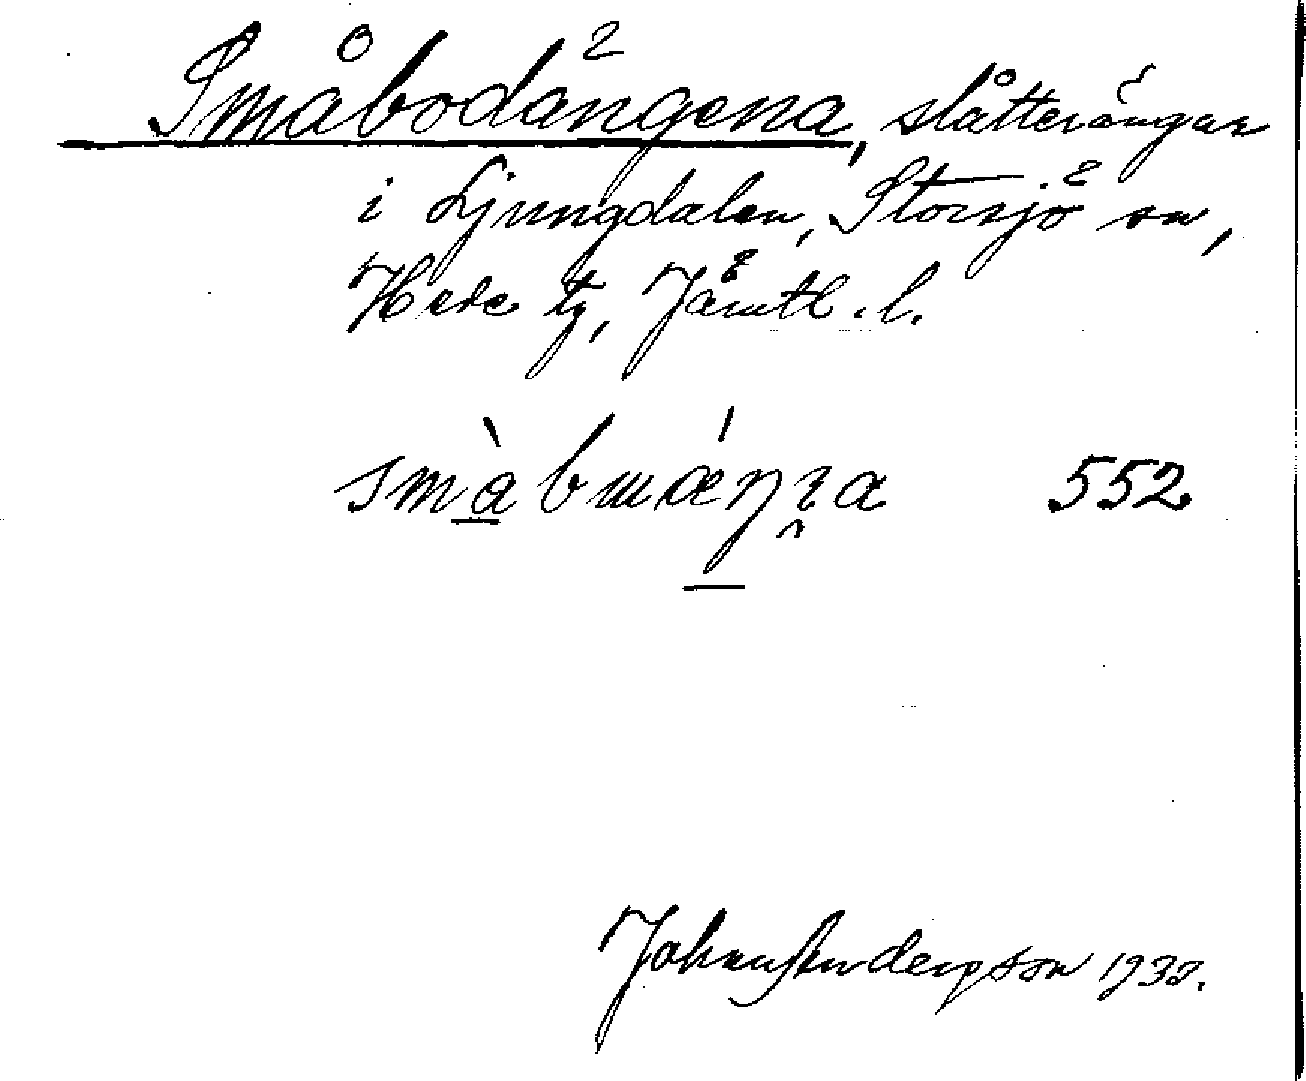 Småbodängena, slåtterängar
i Ljungdalen, Storsjö sn,
Hede tg, Jämtl. l.
552
Johan Anderzson 193